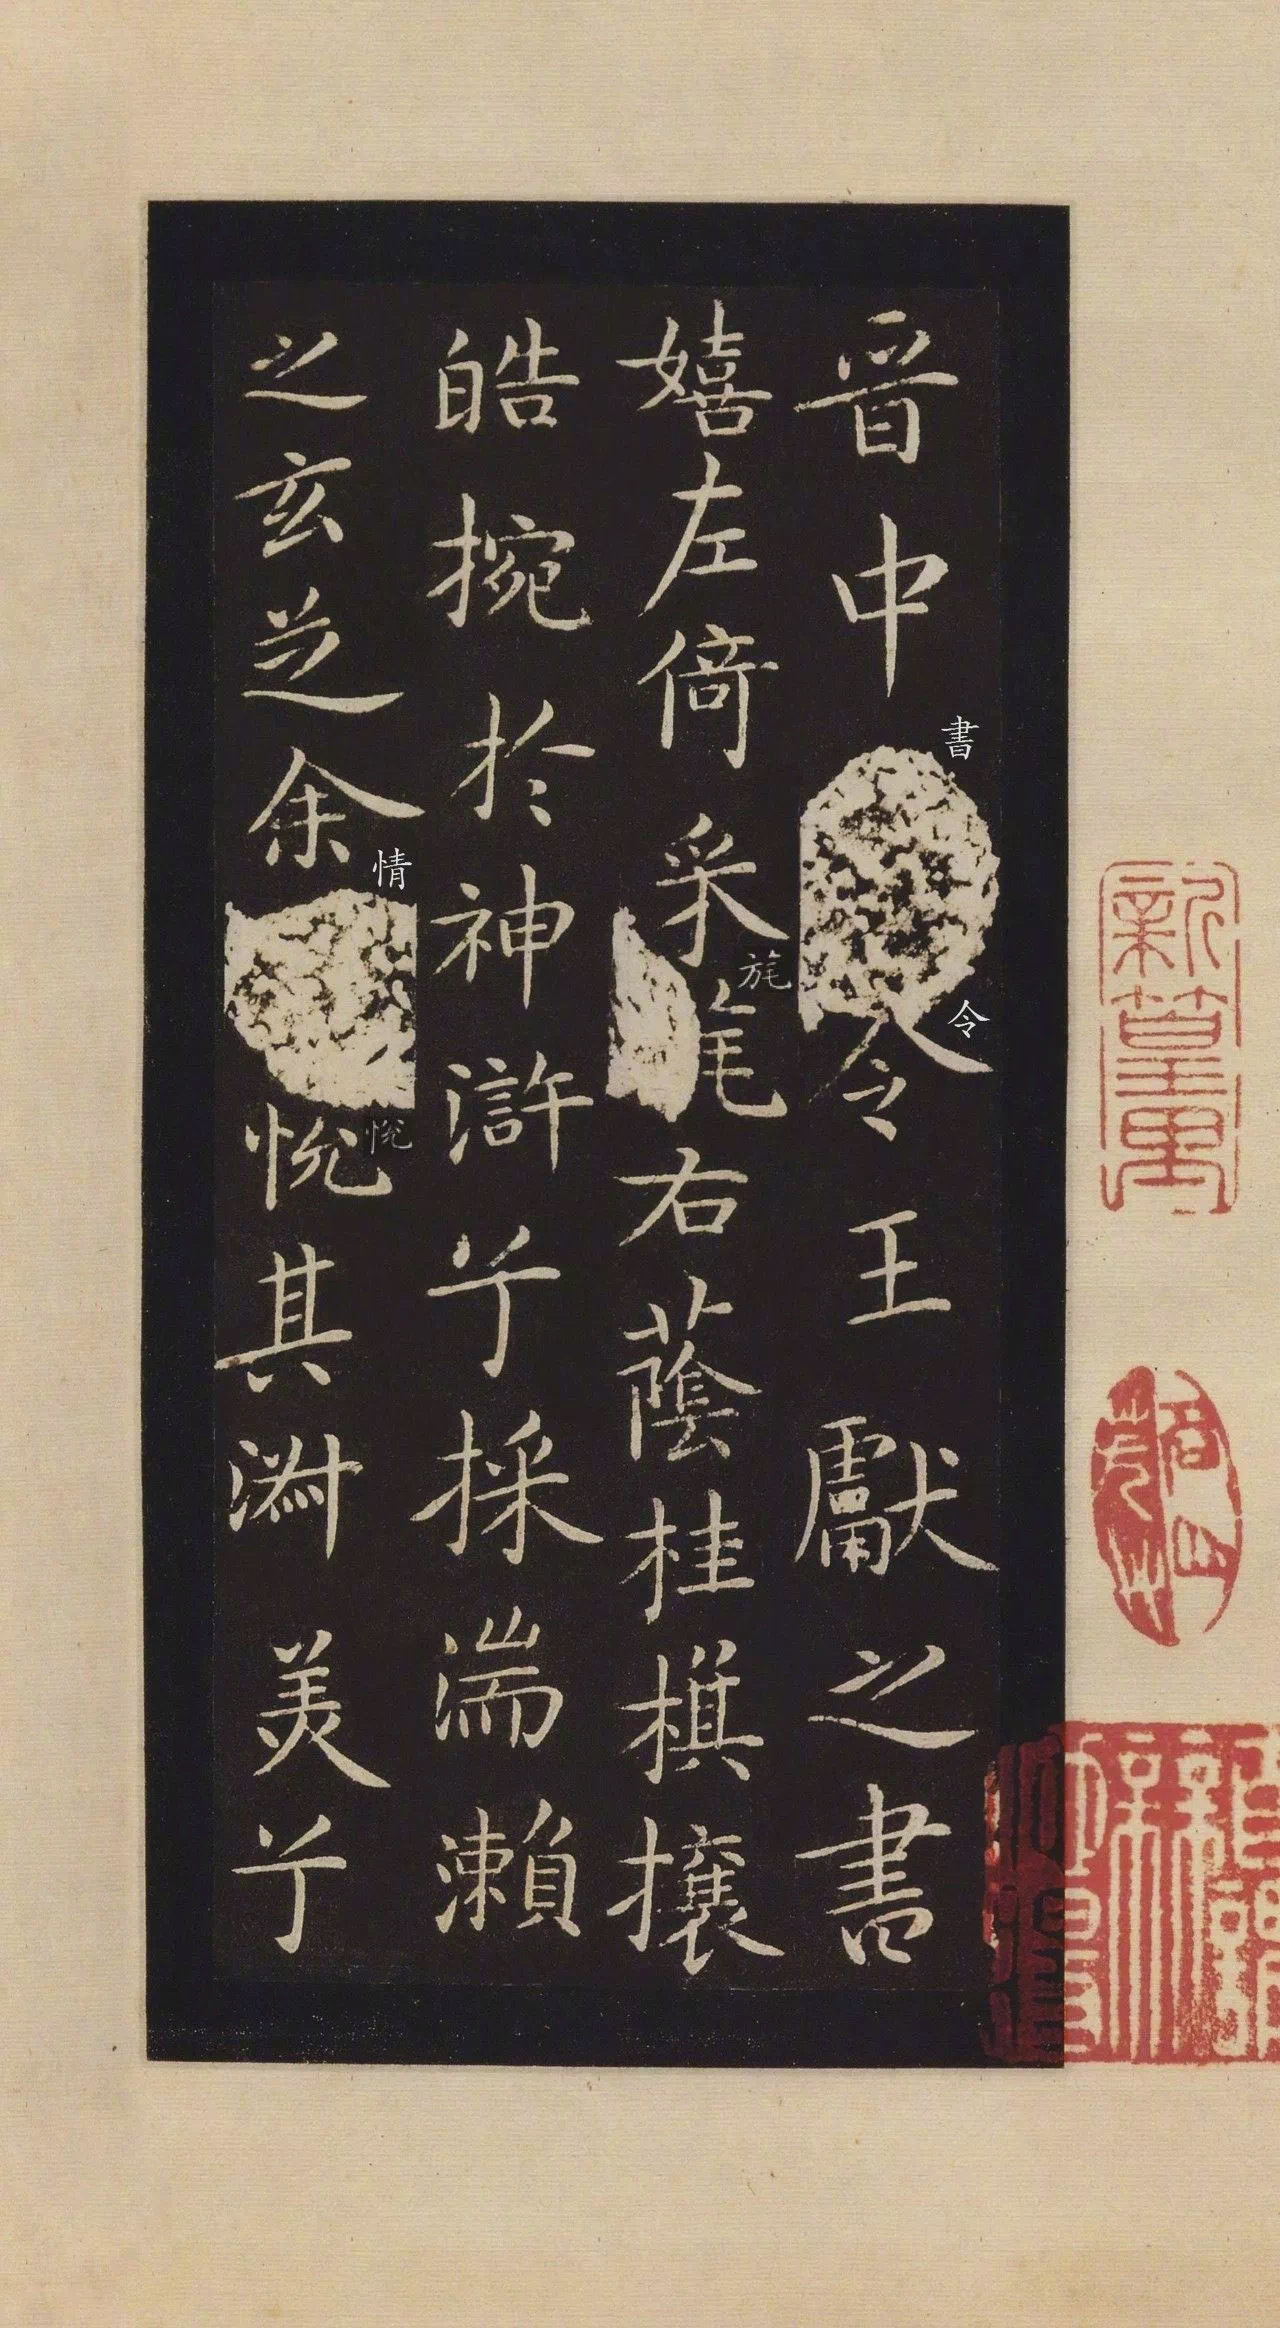 晉中書令王獻之書
嬉左倚采旄右蔭桂棋攘
皓捥於神滸兮採湍瀨
之玄芝余情悅其淑美兮
書
令
旄
情
悅